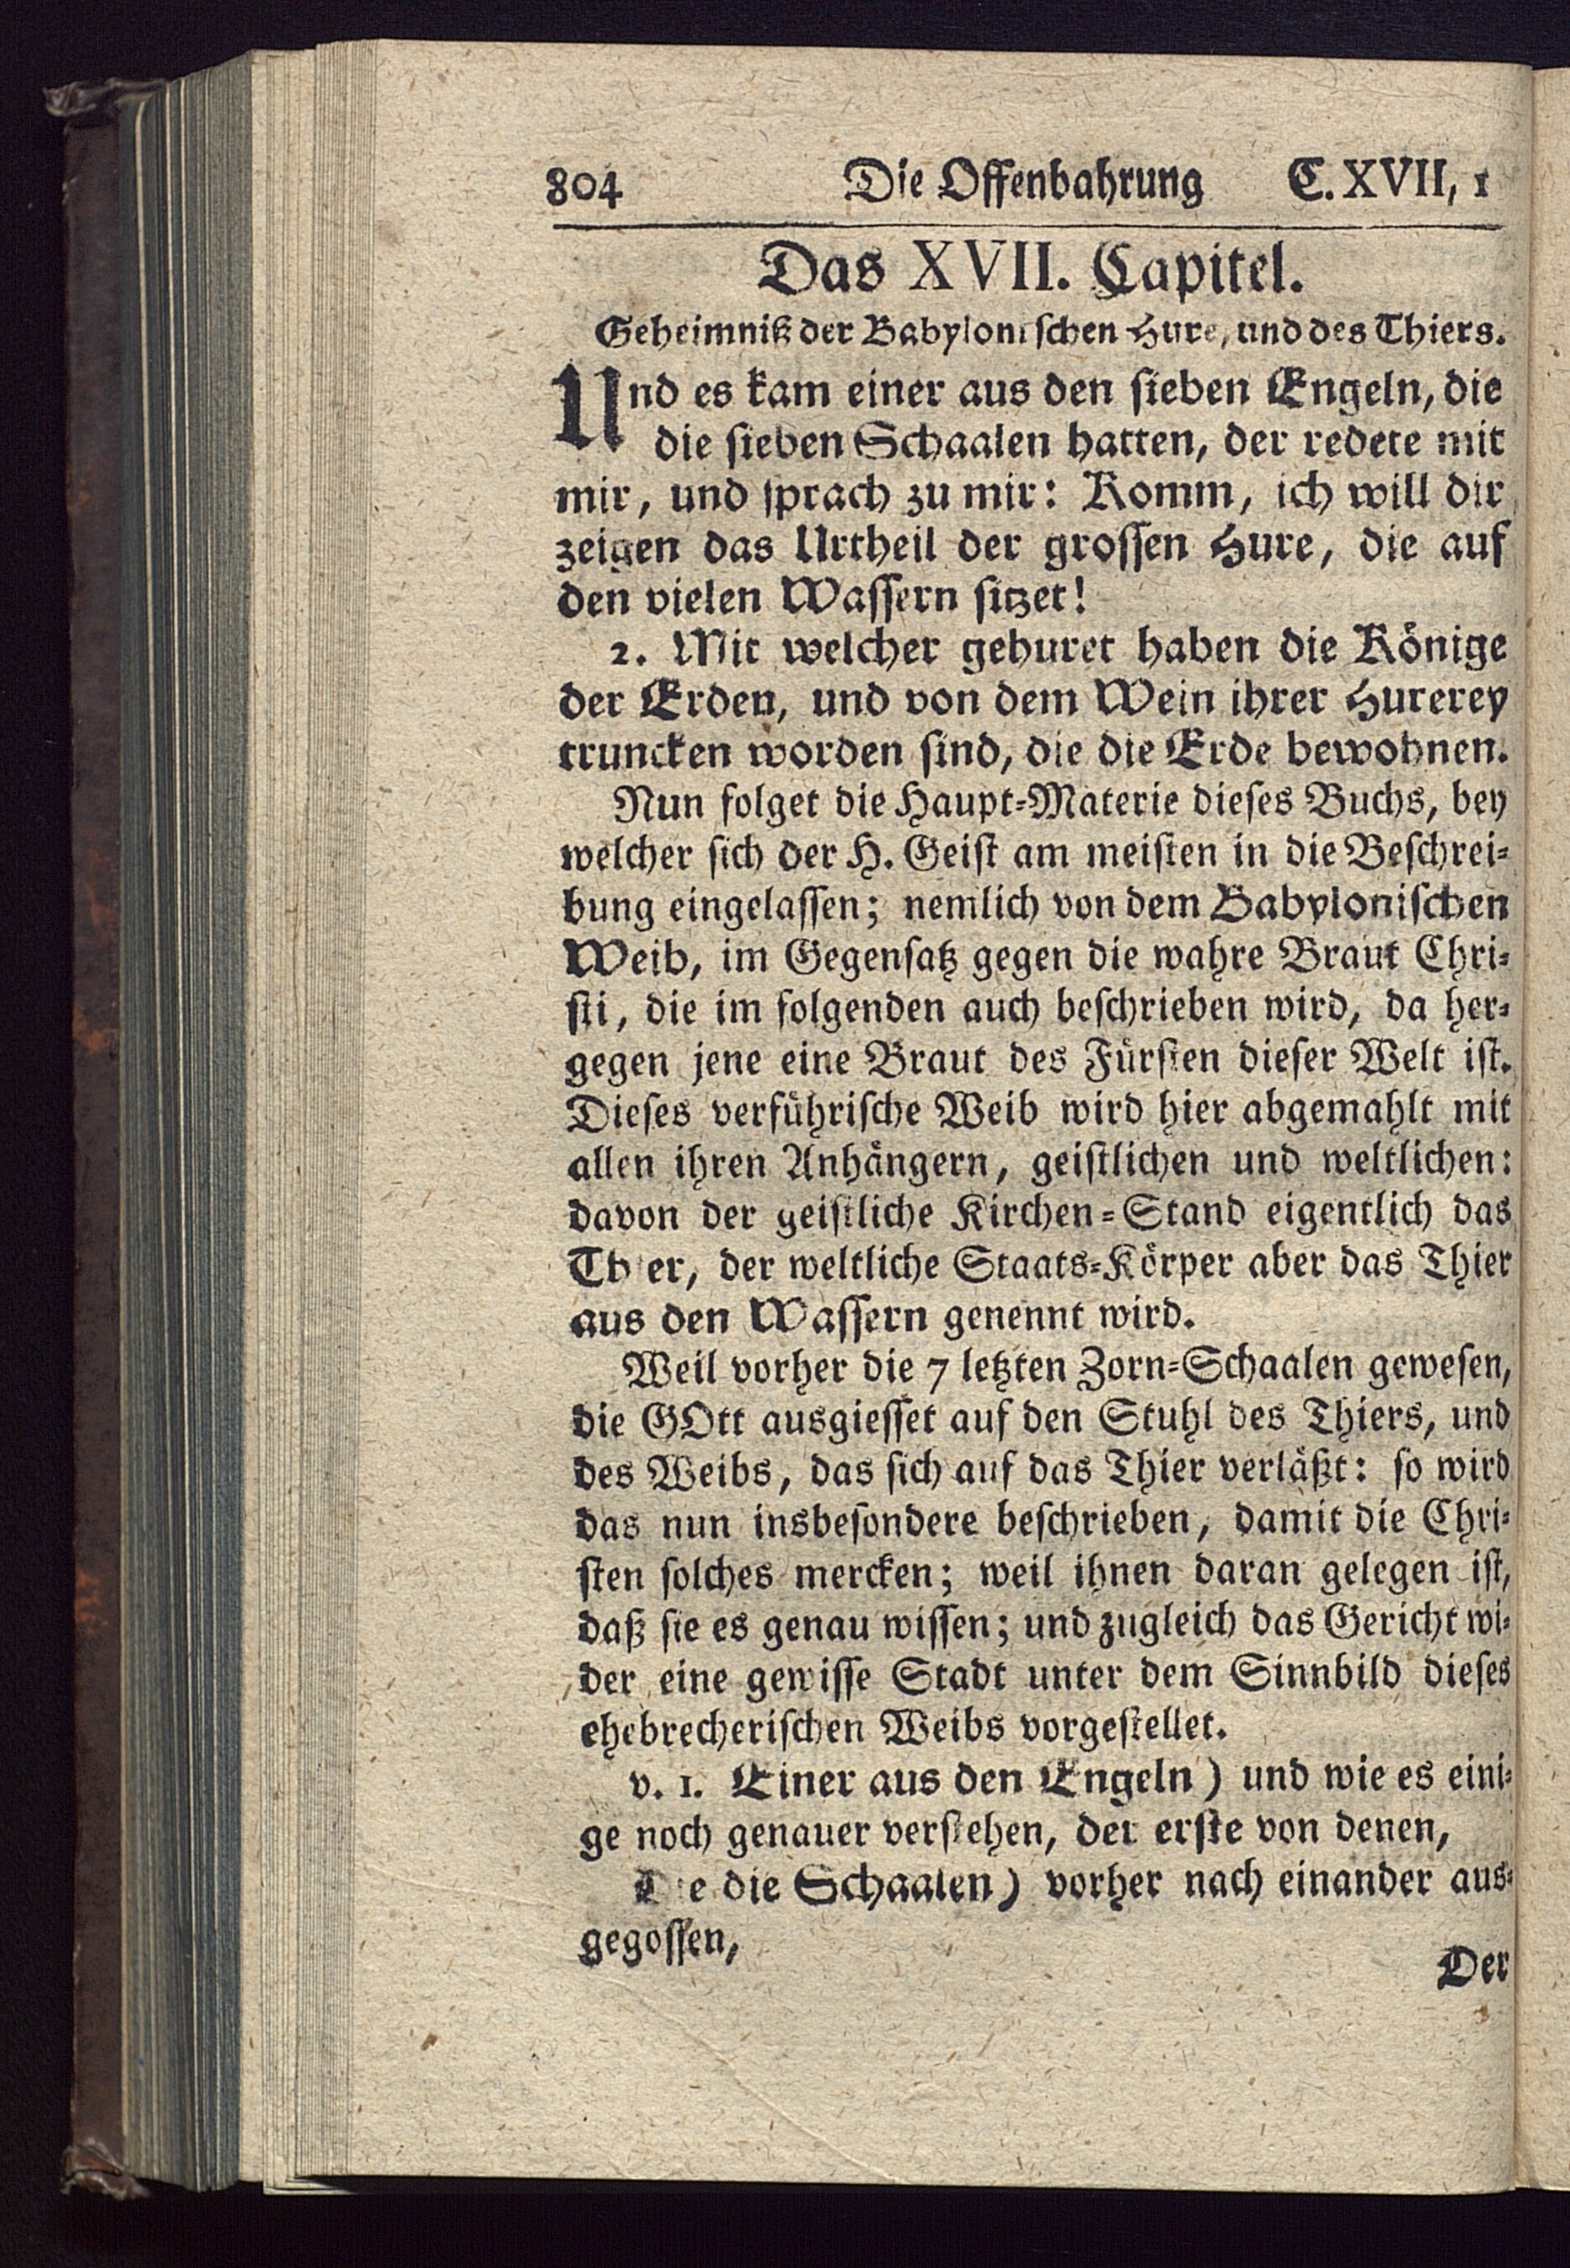 804 Die Offenbahrung C. XVII, 1
Das XVII. Capitel.
Geheimniß der Babylonischen Hure, und des Thiers.
Und es kam einer aus den sieben Engeln, die
die sieben Schaalen hatten, der redete mit
mir, und sprach zu mir: Komm, ich will dir
zeigen das Urtheil der grossen Hure, die auf
den vielen Wassern sitzet!
2. Mit welcher gehuret haben die Könige
der Erden, und von dem Wein ihrer Hurerey
truncken worden sind, die die Erde bewohnen.
Nun folget die Haupt-Materie dieses Buchs, bey
welcher sich der H. Geist am meisten in die Beschrei-
bung eingelassen; nemlich von dem Babylonischen
Weib, im Gegensatz gegen die wahre Braut Chri-
sti, die im folgenden auch beschrieben wird, da her-
gegen jene eine Braut des Fürsten dieser Welt ist.
Dieses verführische Weib wird hier abgemahlt mit
allen ihren Anhängern, geistlichen und weltlichen:
davon der geistliche Kirchen-Stand eigentlich das
Thier, der weltliche Staats-Körper aber das Thier
aus den Wassern genennt wird.
Weil vorher die 7 letzten Zorn-Schaalen gewesen,
die GOtt ausgiesset auf den Stuhl des Thiers, und
des Weibs, das sich auf das Thier verläßt: so wird
das nun insbesondere beschrieben, damit die Chri-
sten solches mercken; weil ihnen daran gelegen ist,
daß sie es genau wissen; und zugleich das Gericht wi-
der eine gewisse Stadt unter dem Sinnbild dieses
ehebrecherischen Weibs vorgestellet.
v. 1. Einer aus den Engeln) und wie es eini-
ge noch genauer verstehen, der erste von denen,
Die die Schaalen) vorher nach einander aus-
gegossen,
Der